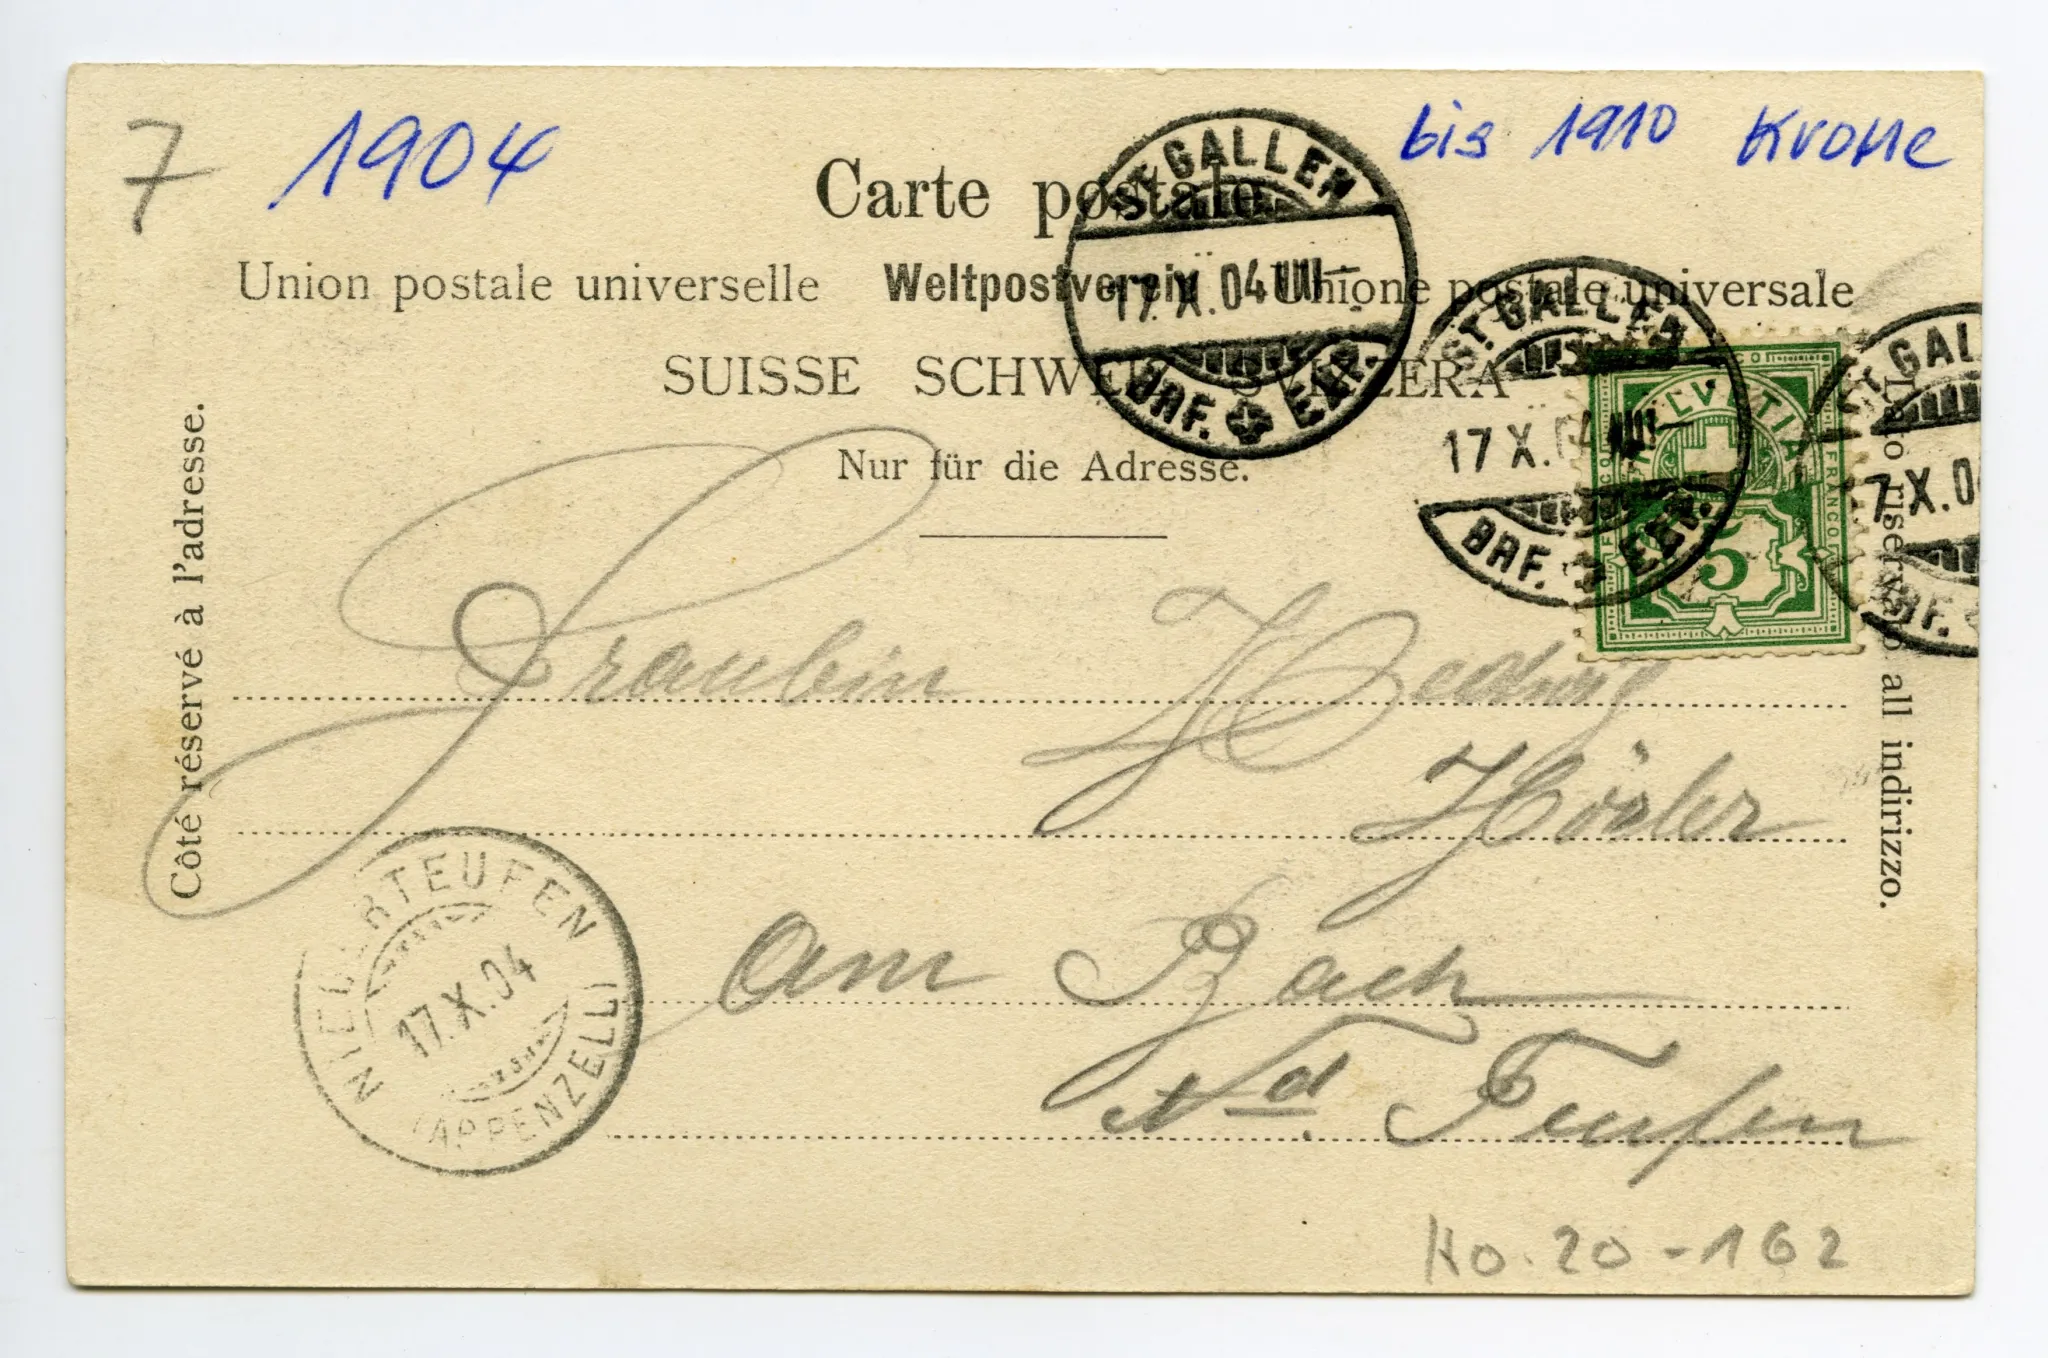 7 1904 bis 1910 Krone
Carte postale.
Union postale universelle Weltpostverein Unione postale universale
SUISSE SCHWEIZ SVIZZERA
Nur für die Adresse.
Côté réservé à l'adresse.
Lato riservato all indirizzo.
ST. GALLEN
17.X.04 VIII–
BRF. EXP.
ST. GALLEN
17.X.04 VIII–
BRF. EXP.
ST. GAL
7.X.0
BRF.
FRANCO
HELVETIA
5
Fraulein Hedwig
Hösler
am Bach
Nd. Teufen
NIEDERTEUFEN
17.X.04
(APPENZELL)
Ho. 20-162